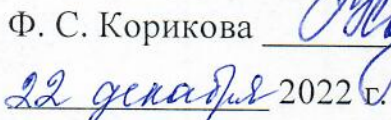 Ф. С. Корикова
22 декабря 2022 г.